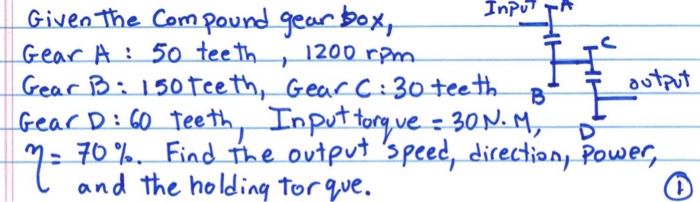 Given the Compound gear box,
Input A
Gear A : 50 teeth , 1200 rpm
C
Gear B: 150 Teeth, Gear C: 30 teeth
B
output
Gear D: 60 Teeth, Input torque = 30 N.M,
D
η= 70%. Find the output speed, direction, Power,
and the holding torque.
1